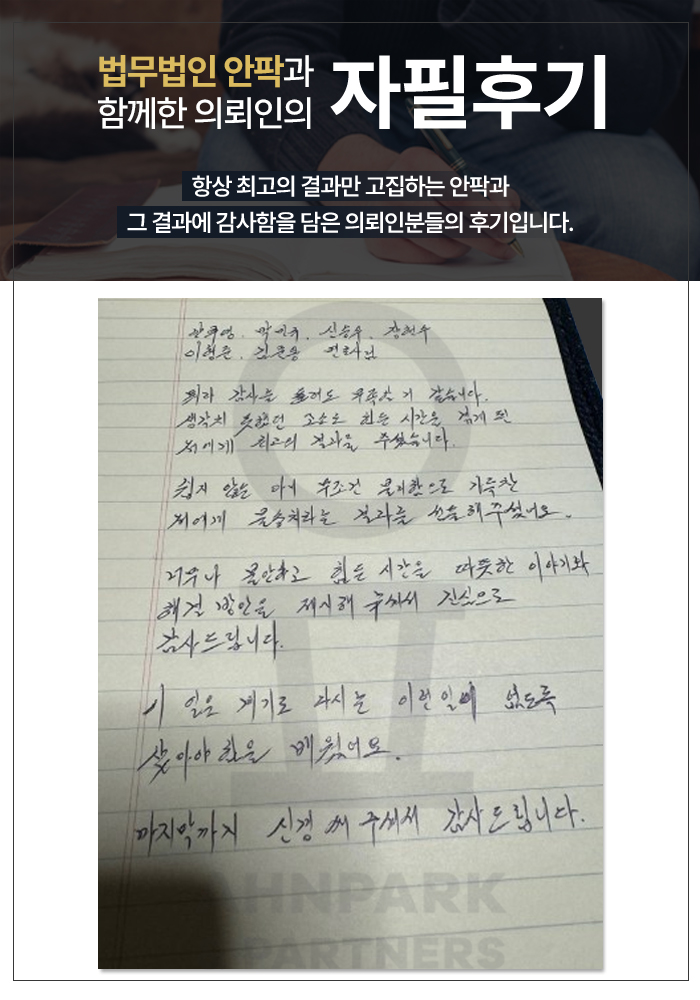 법무법인 안팍과
함께한 의뢰인의
자필후기
항상 최고의 결과만 고집하는 안팍과
그 결과에 감사함을 담은 의뢰인분들의 후기입니다.
신승우,
변호사님
감사를 드려도 부족한 거 같습니다.
생각치 못했던 소송으로 힘든 시간을 겪게 된
저에게 최고의 결과를 주셨습니다.
쉽지 않은 무조건 불기함으로 가득찬
저에게 불송치라는 결과를 선물해주셨어요.
너무나 불안하고 힘든 시간을 따뜻한 이야기와
해결 방안을 제시해 주셔서 진심으로
감사드립니다.
이 일을 계기로 다시는 이런일이 없도록
살아야 함을 배웠어요.
마지막까지 신경 써 주셔서 감사드립니다.
AHNPARK
PARTNERS